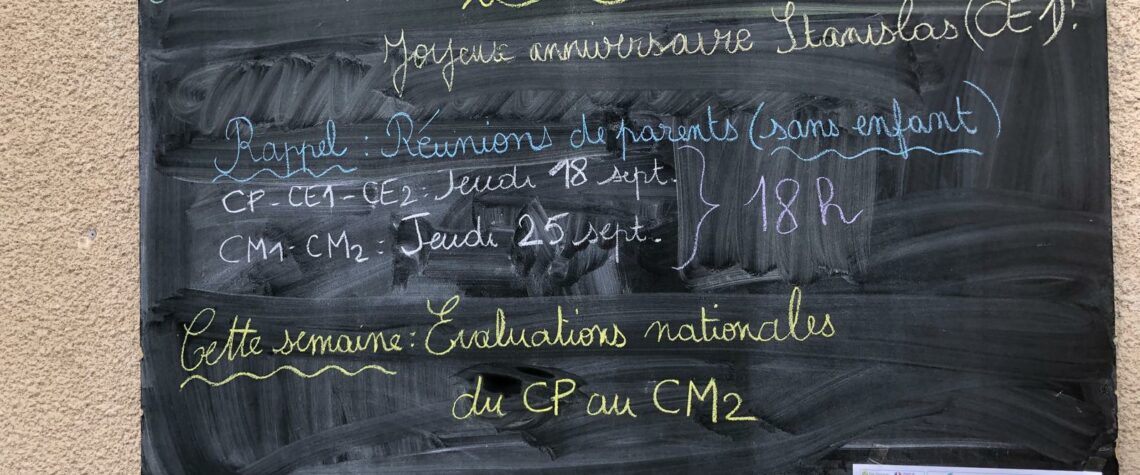 Joyeux anniversaire Stanislas (CE1)!
Rappel : Réunions de parents (sans enfant)
CP-CE1-CE2 : Jeudi 18 sept.
CM1-CM2 : Jeudi 25 sept.
18h
Cette semaine : Evaluations nationales
du CP au CM2